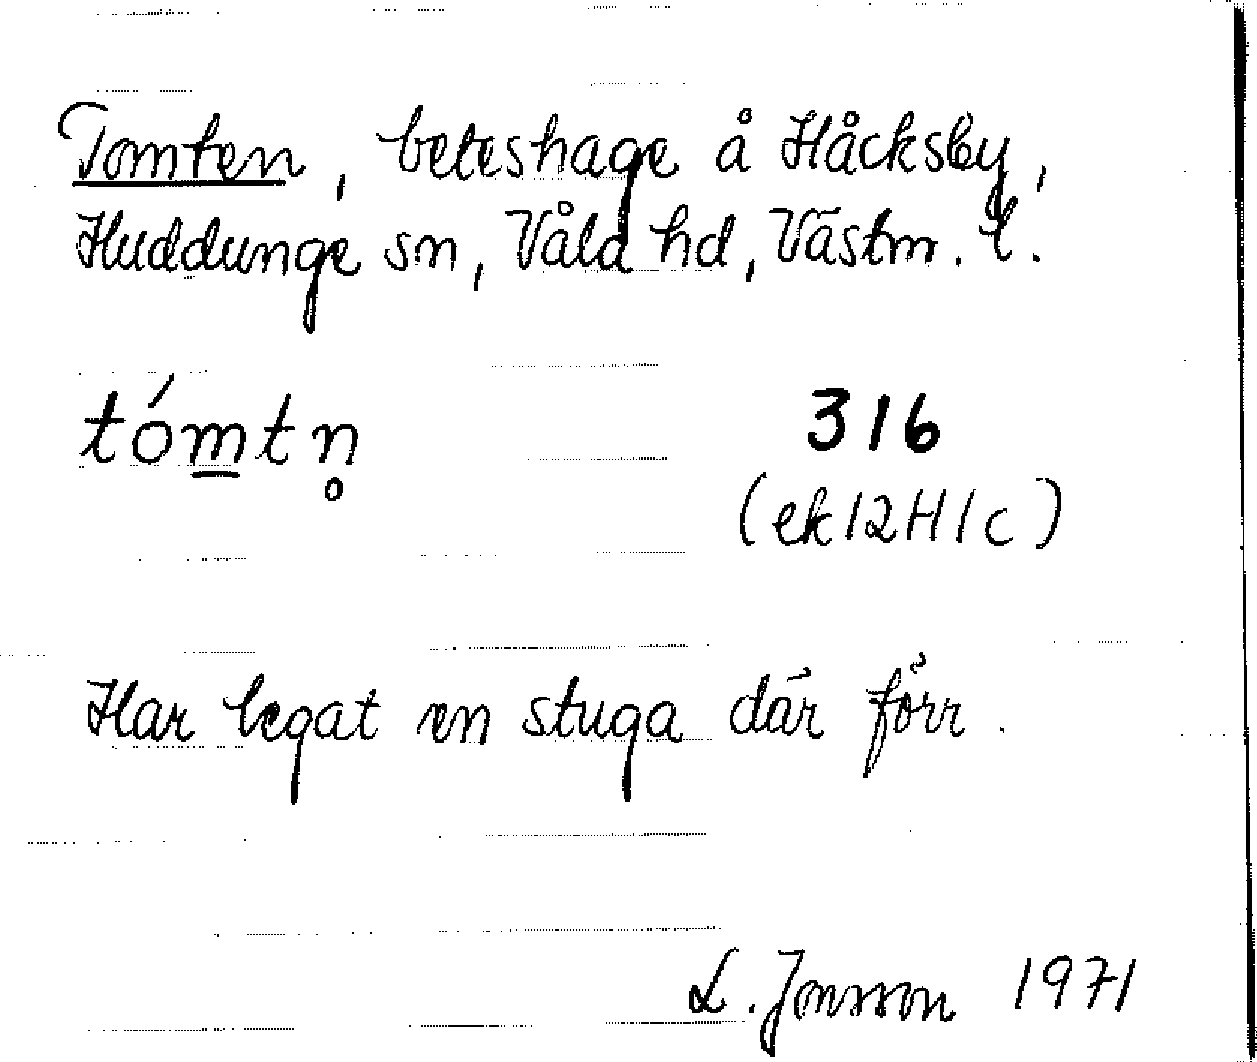 Tomten, beteshage å Håcksby,
Huddunge sn, Våla hd, Västm. l.
tómtn̥
316
(ek 12H1c)
Har legat en stuga där förr.
L. Jonsson 1971